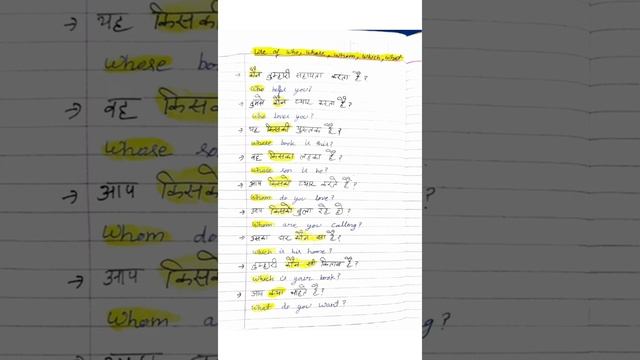 Use of who, whose, whom, which, what
→ कौन तुम्हारी सहायता करता है?
Who helps you?
→ तुमसे कौन प्यार करता है?
Who loves you?
→ यह किसकी पुस्तक है?
Whose book is this?
→ वह किसका लड़का है?
Whose son is he?
→ आप किसको प्यार करते है?
Whom do you love?
→ आप किसको बुला रहे हो?
Whom are you calling?
→ उसका घर कौन सा है?
Which is his home?
→ तुम्हारी कौन सी किताब है?
Which is your book?
→ आप क्या चाहते है?
What do you want?
→ यह किसकी
Whose boo
→ वह किसका
Whose so
→ आप किसको
Whom do
→ आप किसको
Whom a
alling?